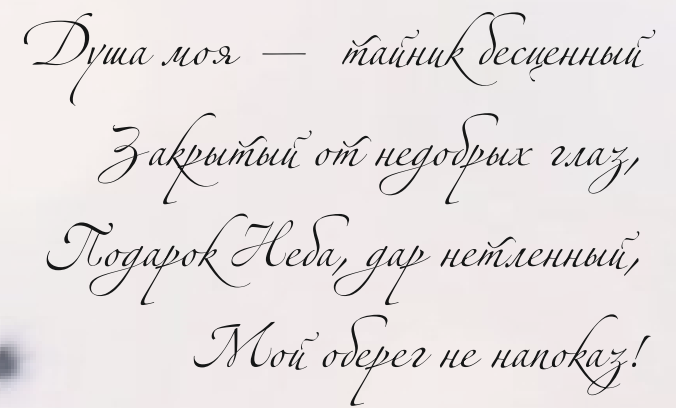 Душа моя — тайник бесценный
Закрытый от недобрых глаз,
Подарок Неба, дар нетленный,
Мой оберег не напоказ!